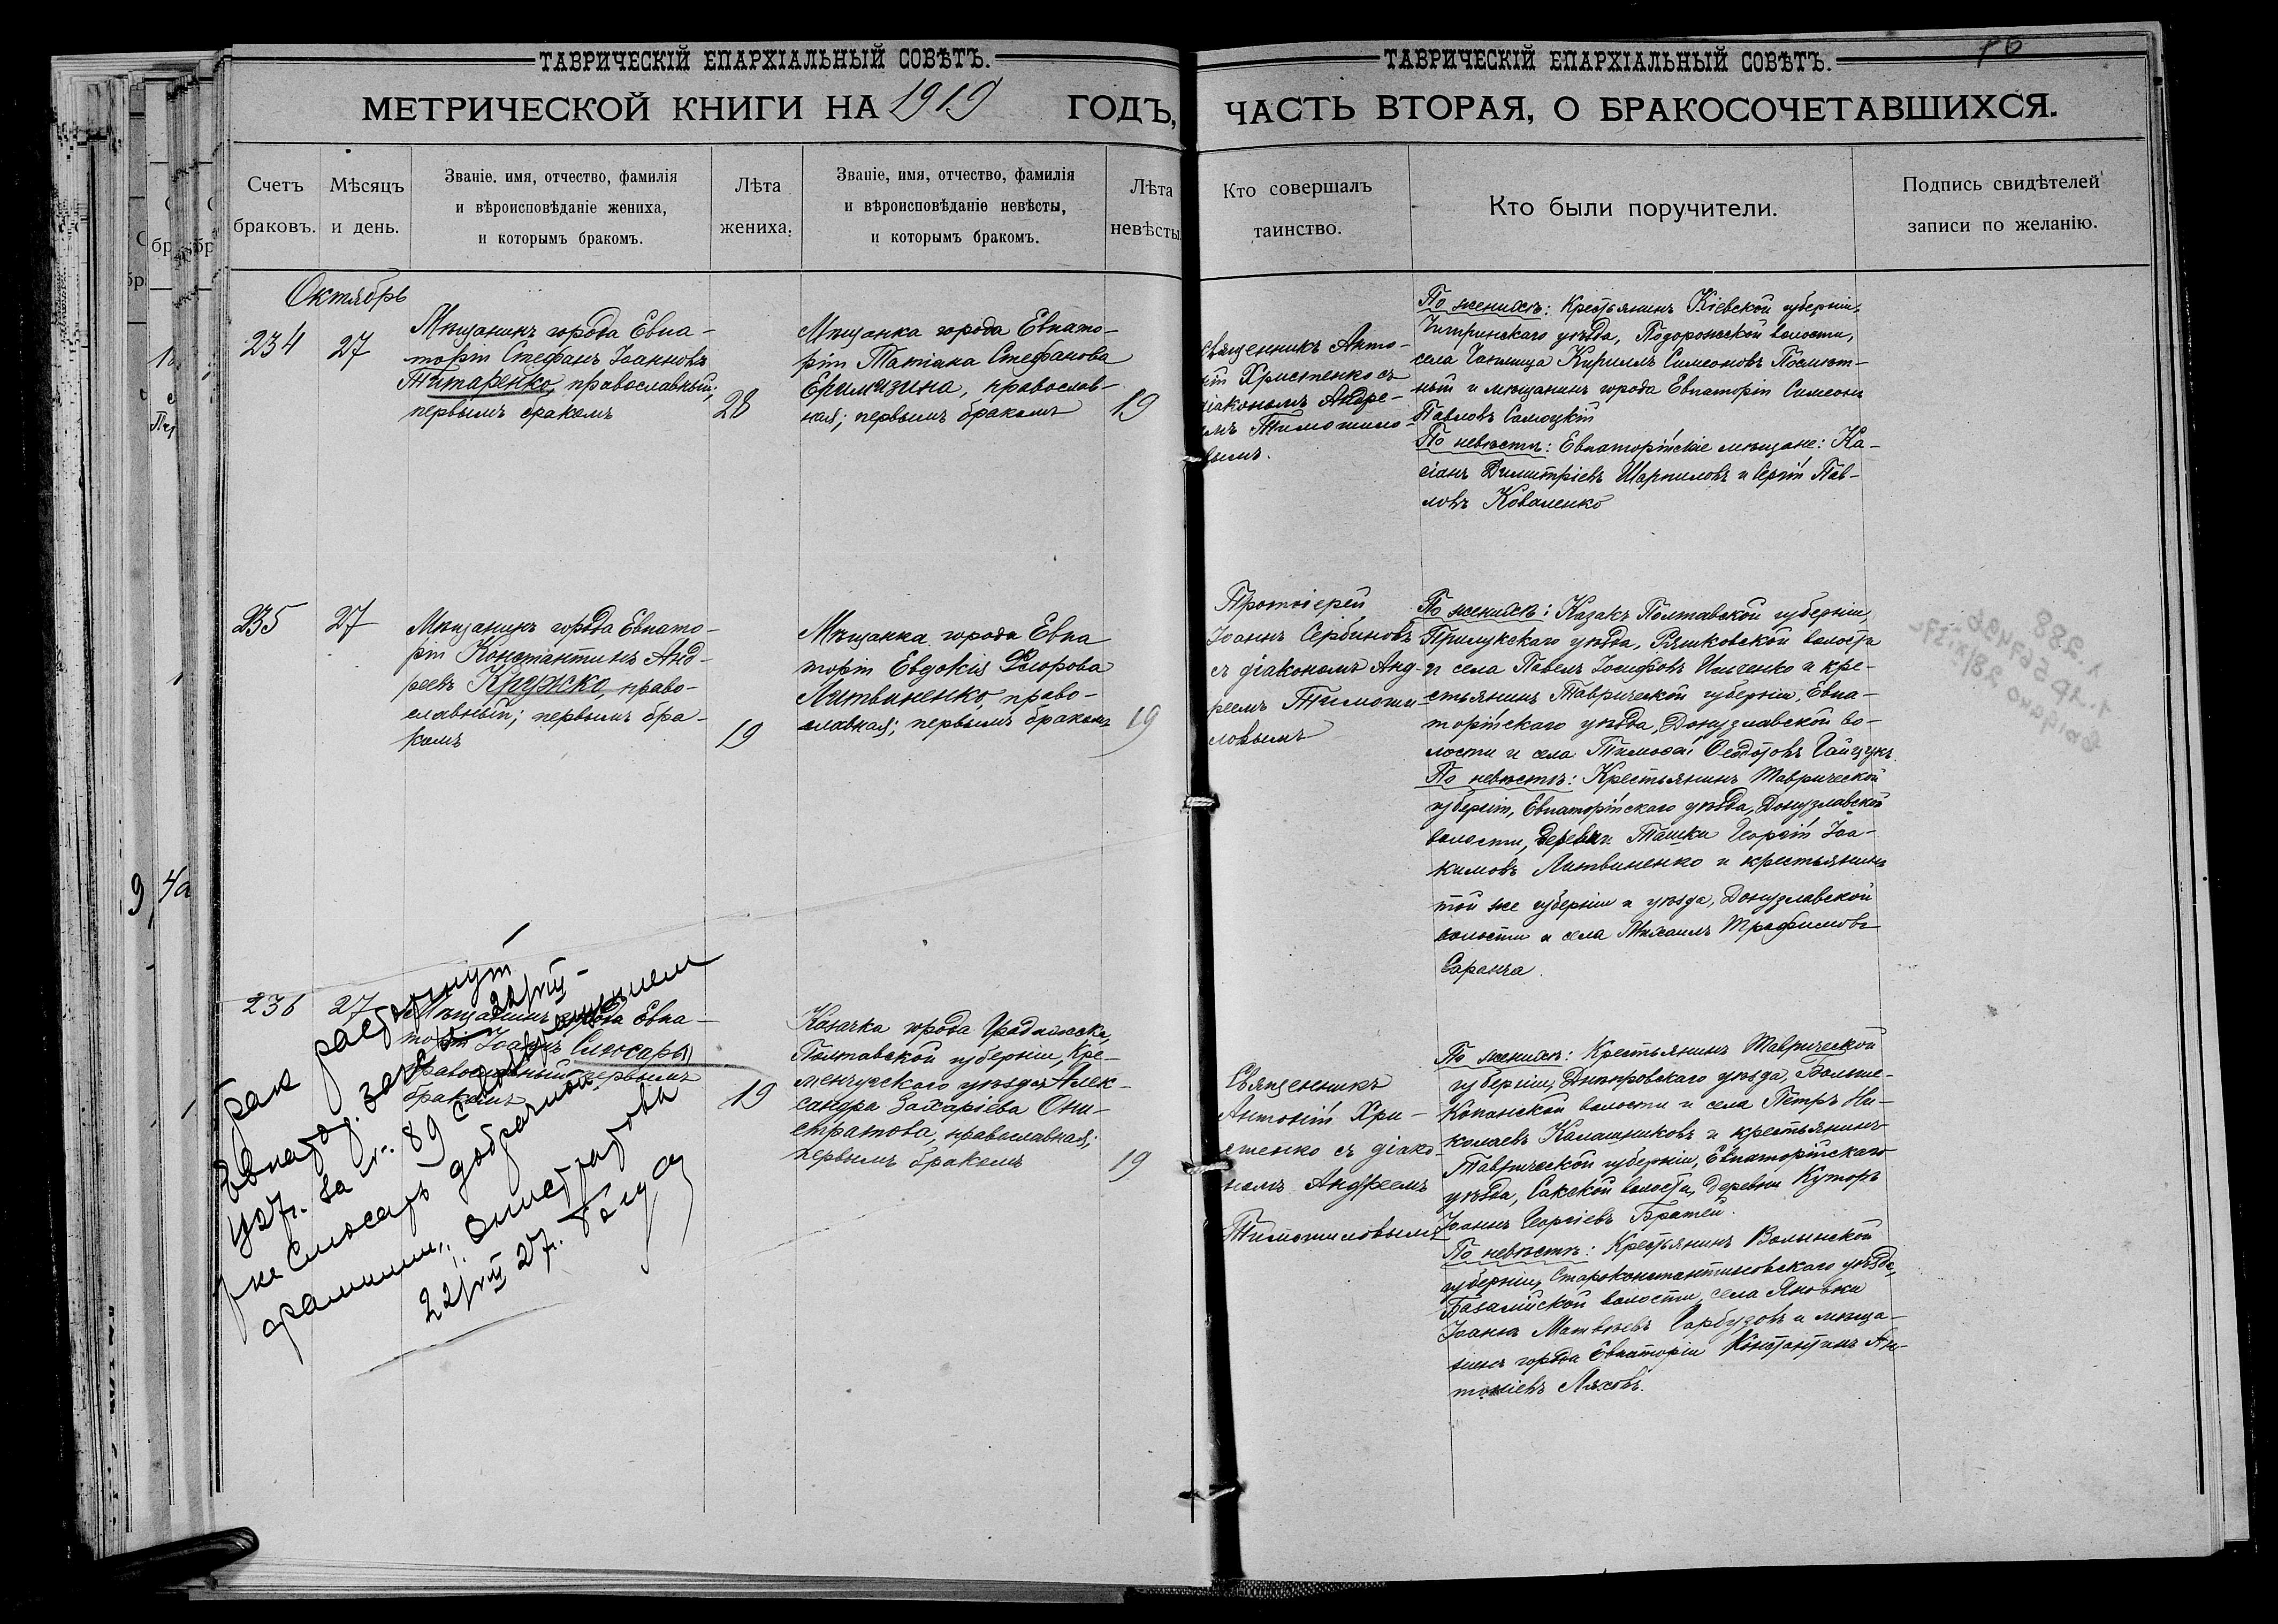 ТАВРИЧЕСКІЙ ЕПАРХІАЛЬНЫЙ СОВѢТЪ.
МЕТРИЧЕСКОЙ КНИГИ НА 1919 ГОДЪ,
Счетъ браковъ.
Мѣсяцъ и день.
Званіе. имя, отчество, фамилія
и вѣроисповѣданіе жениха,
и которымъ бракомъ.
Лѣта жениха.
Званіе, имя, отчество, фамилія
и вѣроисповѣданіе невѣсты,
и которымъ бракомъ.
Лѣта невѣсты
ТАВРИЧЕСКІЙ ЕПАРХІАЛЬНЫЙ СОВѢТЪ.
ЧАСТЬ ВТОРАЯ, О БРАКОСОЧЕТАВШИХСЯ.
Кто совершалъ
таинство.
Кто были поручители.
Подпись свидѣтелей
записи по желанію.
Октябрь
234
27
Мѣщанинъ города Евпа-
торіи Стефанъ Іоанновъ
Титаренко, православный;
первымъ бракомъ
28
Мѣщанка города Евпато-
ріи Татіана Стефанова
Еримизина, православ-
ная; первымъ бракомъ
19
Священникъ Анто-
ній Христенко съ
діакономъ Андре-
емъ Тимошило-
вымъ.
По женихѣ: Крестьянинъ Кіевской губерніи,
Чигринскаго уѣзда, Подорожской волости,
села Кириллъ Симеоновъ
и мѣщанинъ города Евпаторіи Симеонъ
Павловъ Самоцкій
По невѣстѣ: Евпаторійскіе мѣщане: Ка-
сіанъ Димитріевъ Шарпиловъ и Сергій Пав-
ловъ Коваленко
235
27
Мѣщанинъ города Евпато-
ріи Константинъ Анд-
реевъ Кружко, право-
славный; первымъ бра-
комъ
19
Мѣщанка города Евпа
торіи Евдокія Флорова
Литвиненко, право-
славная; первымъ бракомъ
19
Протоіерей
Іоаннъ Сербиновъ
съ діакономъ Анд-
реемъ Тимоши-
ловымъ
По женихѣ: Казакъ Полтавской губерніи,
Прилукскаго уѣзда, Ряшковской волости
и села Павелъ Іосифовъ Ильченко и кре-
стьянинъ Таврической губерніи, Евпа-
торійскаго уѣзда, Донузлавской во-
лости и села Тимофей Федотовъ Гайцукъ.
По невѣстѣ: Крестьянинъ Таврической
губерніи, Евпаторійскаго уѣзда, Донузлавской
волости, деревни Ташки Георгій Іоа-
кимовъ Литвиненко и крестьянинъ
той же губерніи и уѣзда, Донузлавской
волости и села Михаилъ Трофимовъ
Саранча.
236
27
Мѣщанинъ города Евпа-
торіи Іоаннъ Слюсарь
православный; первымъ
бракомъ
19
Казачка города Градижска,
Полтавской губерніи, Кре-
менчугскаго уѣзда Алек-
сандра Захаріева Они-
стратова, православная;
первымъ бракомъ
19
Священникъ
Антоній Хри-
стенко съ діако-
номъ Андреемъ
Тимошиловымъ
По женихѣ: Крестьянинъ Таврической
губерніи, Днѣпровскаго уѣзда, Больше-
Копанской волости и села Петръ Ни-
колаевъ Калашниковъ и крестьянинъ
Таврической губерніи, Евпаторійскаго
уѣзда, Сакской волости, деревни Куторъ
Іоаннъ Георгіевъ Братей.
По невѣстѣ: Крестьянинъ Волынской
губерніи, Староконстантиновскаго уѣзда,
Базалійской волости, села Яновки
Іоаннъ Матвѣевъ Гарбузовъ и мѣща-
нинъ города Евпаторіи Константинъ Ан-
тоніевъ Ляховъ.
Брак расторгнут
Евпатор. загс 22/VIII-
1927г. за № 89 с возвращением
г-ке Слюсарь добрачной
фамилии „Онистратова
22/VIII 27.